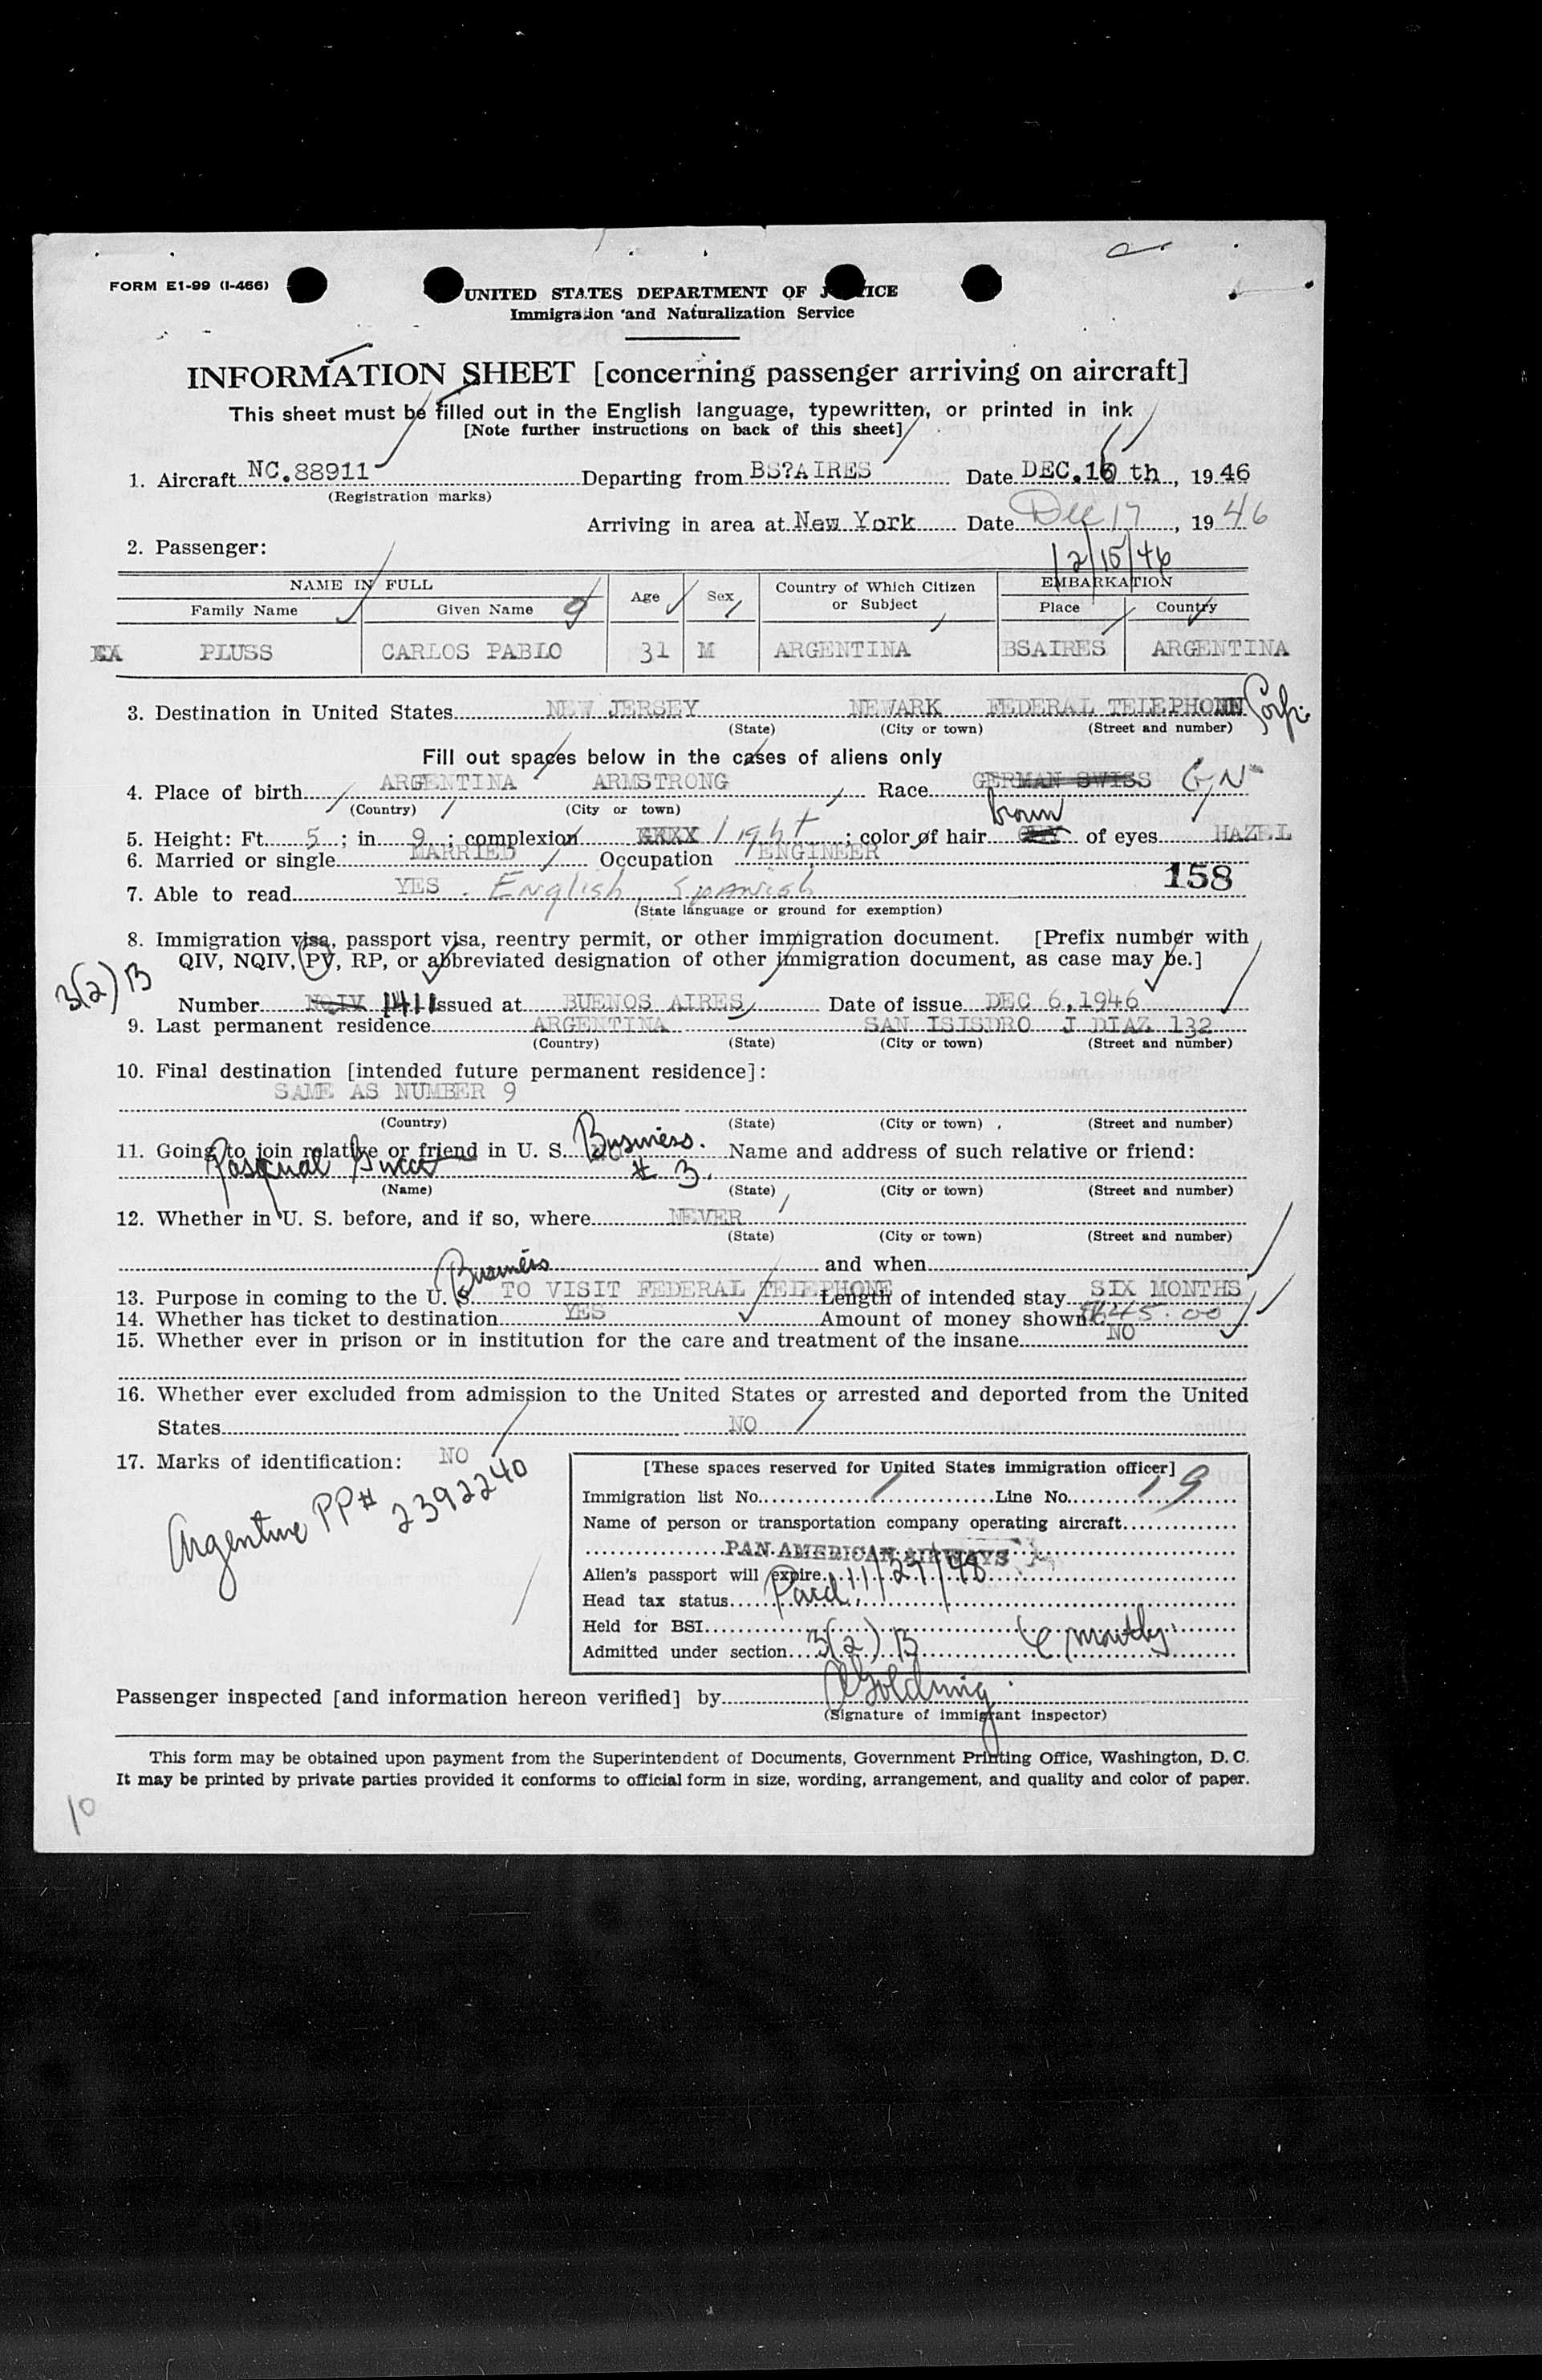 FORM E1-99 (I-466)
UNITED STATES DEPARTMENT OF JUSTICE
Immigration and Naturalization Service
INFORMATION SHEET [concerning passenger arriving on aircraft]
This sheet must be filled out in the English language, typewritten, or printed in ink
[Note further instructions on back of this sheet]
1. Aircraft NC.88911 Departing from BS?AIRES Date DEC.16 th, 1946
(Registration marks)
Arriving in area at New York Date Dec 17, 1946
2. Passenger: 12/15/46
NAME IN FULL Age Sex Country of Which Citizen or Subject EMBARKATION
Family Name Given Name Place Country
PLUSS CARLOS PABLO 31 M ARGENTINA BSAIRES ARGENTINA
3. Destination in United States NEW JERSEY NEWARK FEDERAL TELEPHONE Corp.
(State) (City or town) (Street and number)
Fill out spaces below in the cases of aliens only
4. Place of birth ARGENTINA ARMSTRONG Race GERMAN SWISS
(Country) (City or town)
5. Height: Ft. 5; in 9; complexion light; color of hair brown of eyes HAZEL
6. Married or single MARRIED Occupation ENGINEER
158
7. Able to read YES. English Spanish
(State language or ground for exemption)
8. Immigration visa, passport visa, reentry permit, or other immigration document. [Prefix number with
QIV, NQIV, PV, RP, or abbreviated designation of other immigration document, as case may be.]
3(2)B
Number NQIV 1411 Issued at BUENOS AIRES Date of issue DEC 6,1946
9. Last permanent residence ARGENTINA SAN ISISDRO J DIAZ 132
(Country) (State) (City or town) (Street and number)
10. Final destination [intended future permanent residence]:
SAME AS NUMBER 9
(Country) (State) (City or town) (Street and number)
11. Going to join relative or friend in U. S. Business. Name and address of such relative or friend:
Pasqual # 3.
(Name) (State) (City or town) (Street and number)
12. Whether in U. S. before, and if so, where NEVER
(State) (City or town) (Street and number)
and when
Business
13. Purpose in coming to the U. S. TO VISIT FEDERAL TELEPHONE Length of intended stay SIX MONTHS
14. Whether has ticket to destination YES Amount of money shown
15. Whether ever in prison or in institution for the care and treatment of the insane NO
16. Whether ever excluded from admission to the United States or arrested and deported from the United
States NO
17. Marks of identification: NO
Argentine PP# 2392240
[These spaces reserved for United States immigration officer]
Immigration list No. 1 Line No. 19
Name of person or transportation company operating aircraft
PAN AMERICAN AIRWAYS
Alien's passport will expire 11/27/48
Head tax status Paid
Held for BSI
Admitted under section 3(2) B 6 months
Passenger inspected [and information hereon verified] by Golding
(Signature of immigrant inspector)
This form may be obtained upon payment from the Superintendent of Documents, Government Printing Office, Washington, D. C.
It may be printed by private parties provided it conforms to official form in size, wording, arrangement, and quality and color of paper.
10